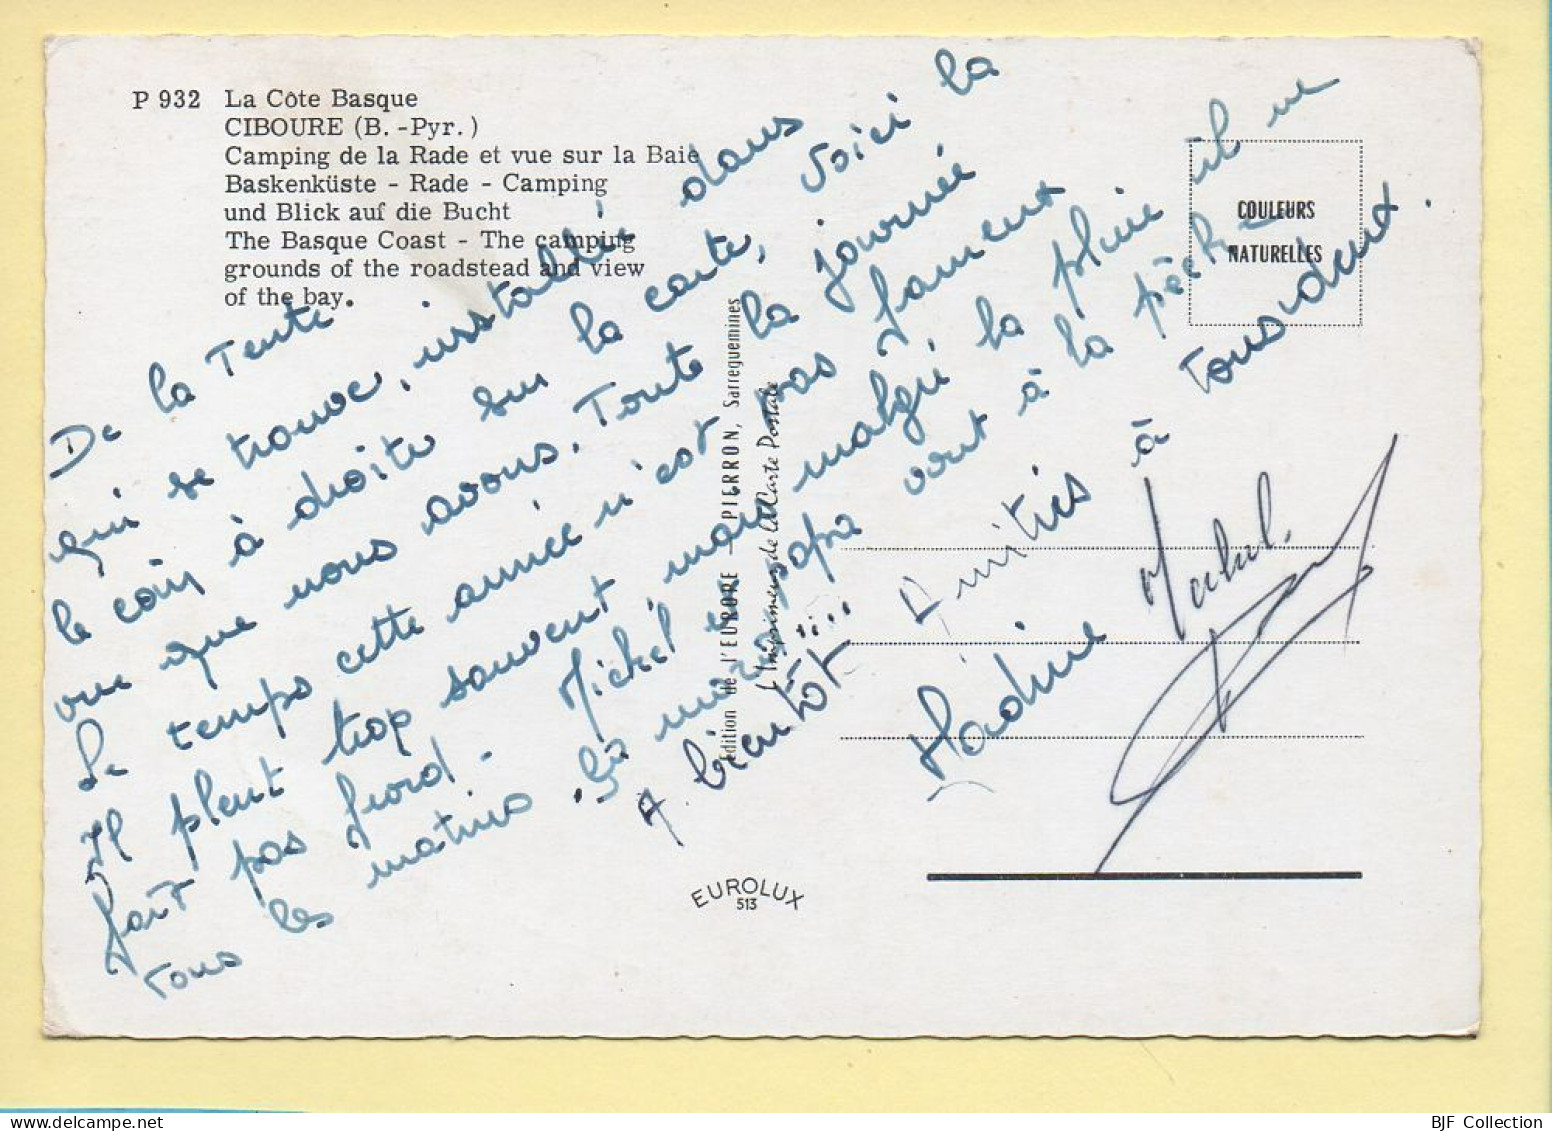 P 932 La Côte Basque
CIBOURE (B. -Pyr. )
Camping de la Rade et vue sur la Baie
Baskenküste - Rade - Camping
und Blick auf die Bucht
The Basque Coast - The camping
grounds of the roadstead and view
of the bay.
De la Tente
qui se trouve, installée dans
le coin à droite sur la carte, voici la
vue que nous avons. Toute la journée
Le temps cette année n'est pas fameux
Il pleut trop souvent, mais malgré la pluie il ne
fait pas froid - Michel et papa vont à la pêche
tous les matins.
A bientôt !!!
Amitiés à tous deux.
Nadine Michel.
COULEURS
NATURELLES
Edition de l'EUROPE - PIERRON, Sarreguemines
l'Imprimeur de la Carte Postale
EUROLUX
513
BJF Collection